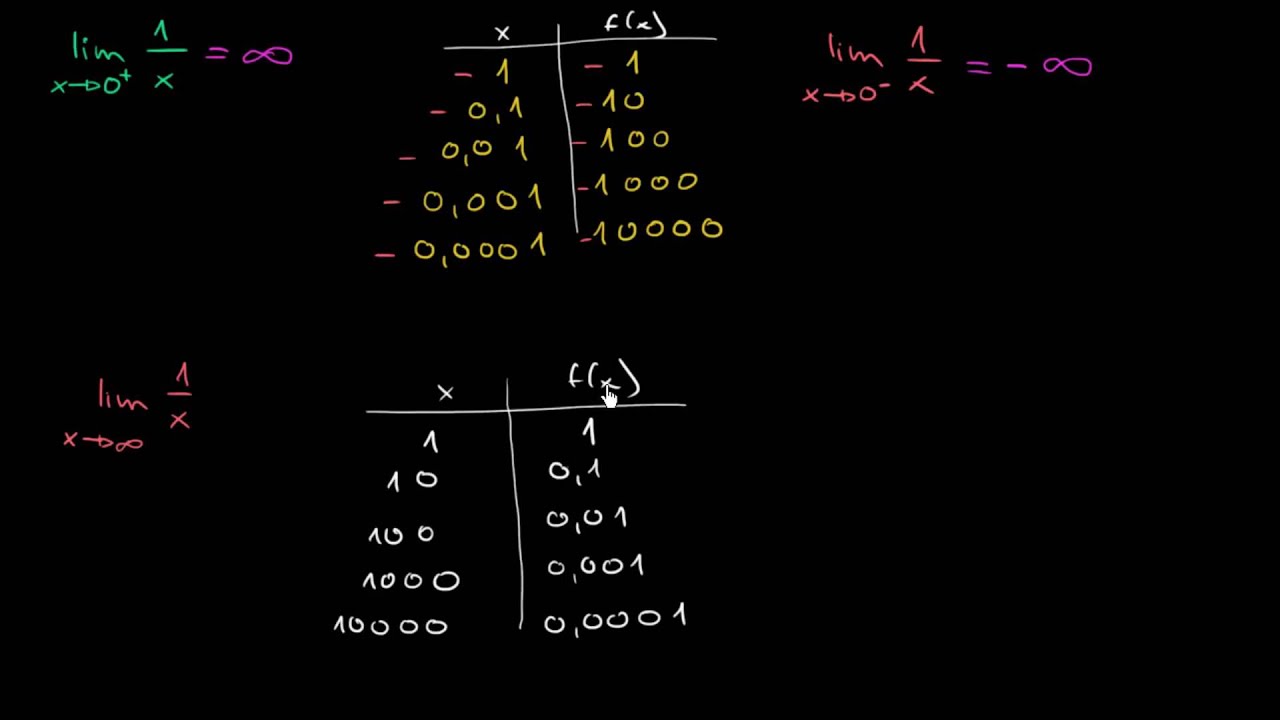 lim x→0⁺ 1/x = ∞
x | f(x)
- 1 | - 1
- 0,1 | - 10
- 0,01 | - 100
- 0,001 | - 1000
- 0,0001 | - 10000
lim x→0⁻ 1/x = - ∞
lim x→∞ 1/x
x | f(x)
1 | 1
10 | 0,1
100 | 0,01
1000 | 0,001
10000 | 0,0001